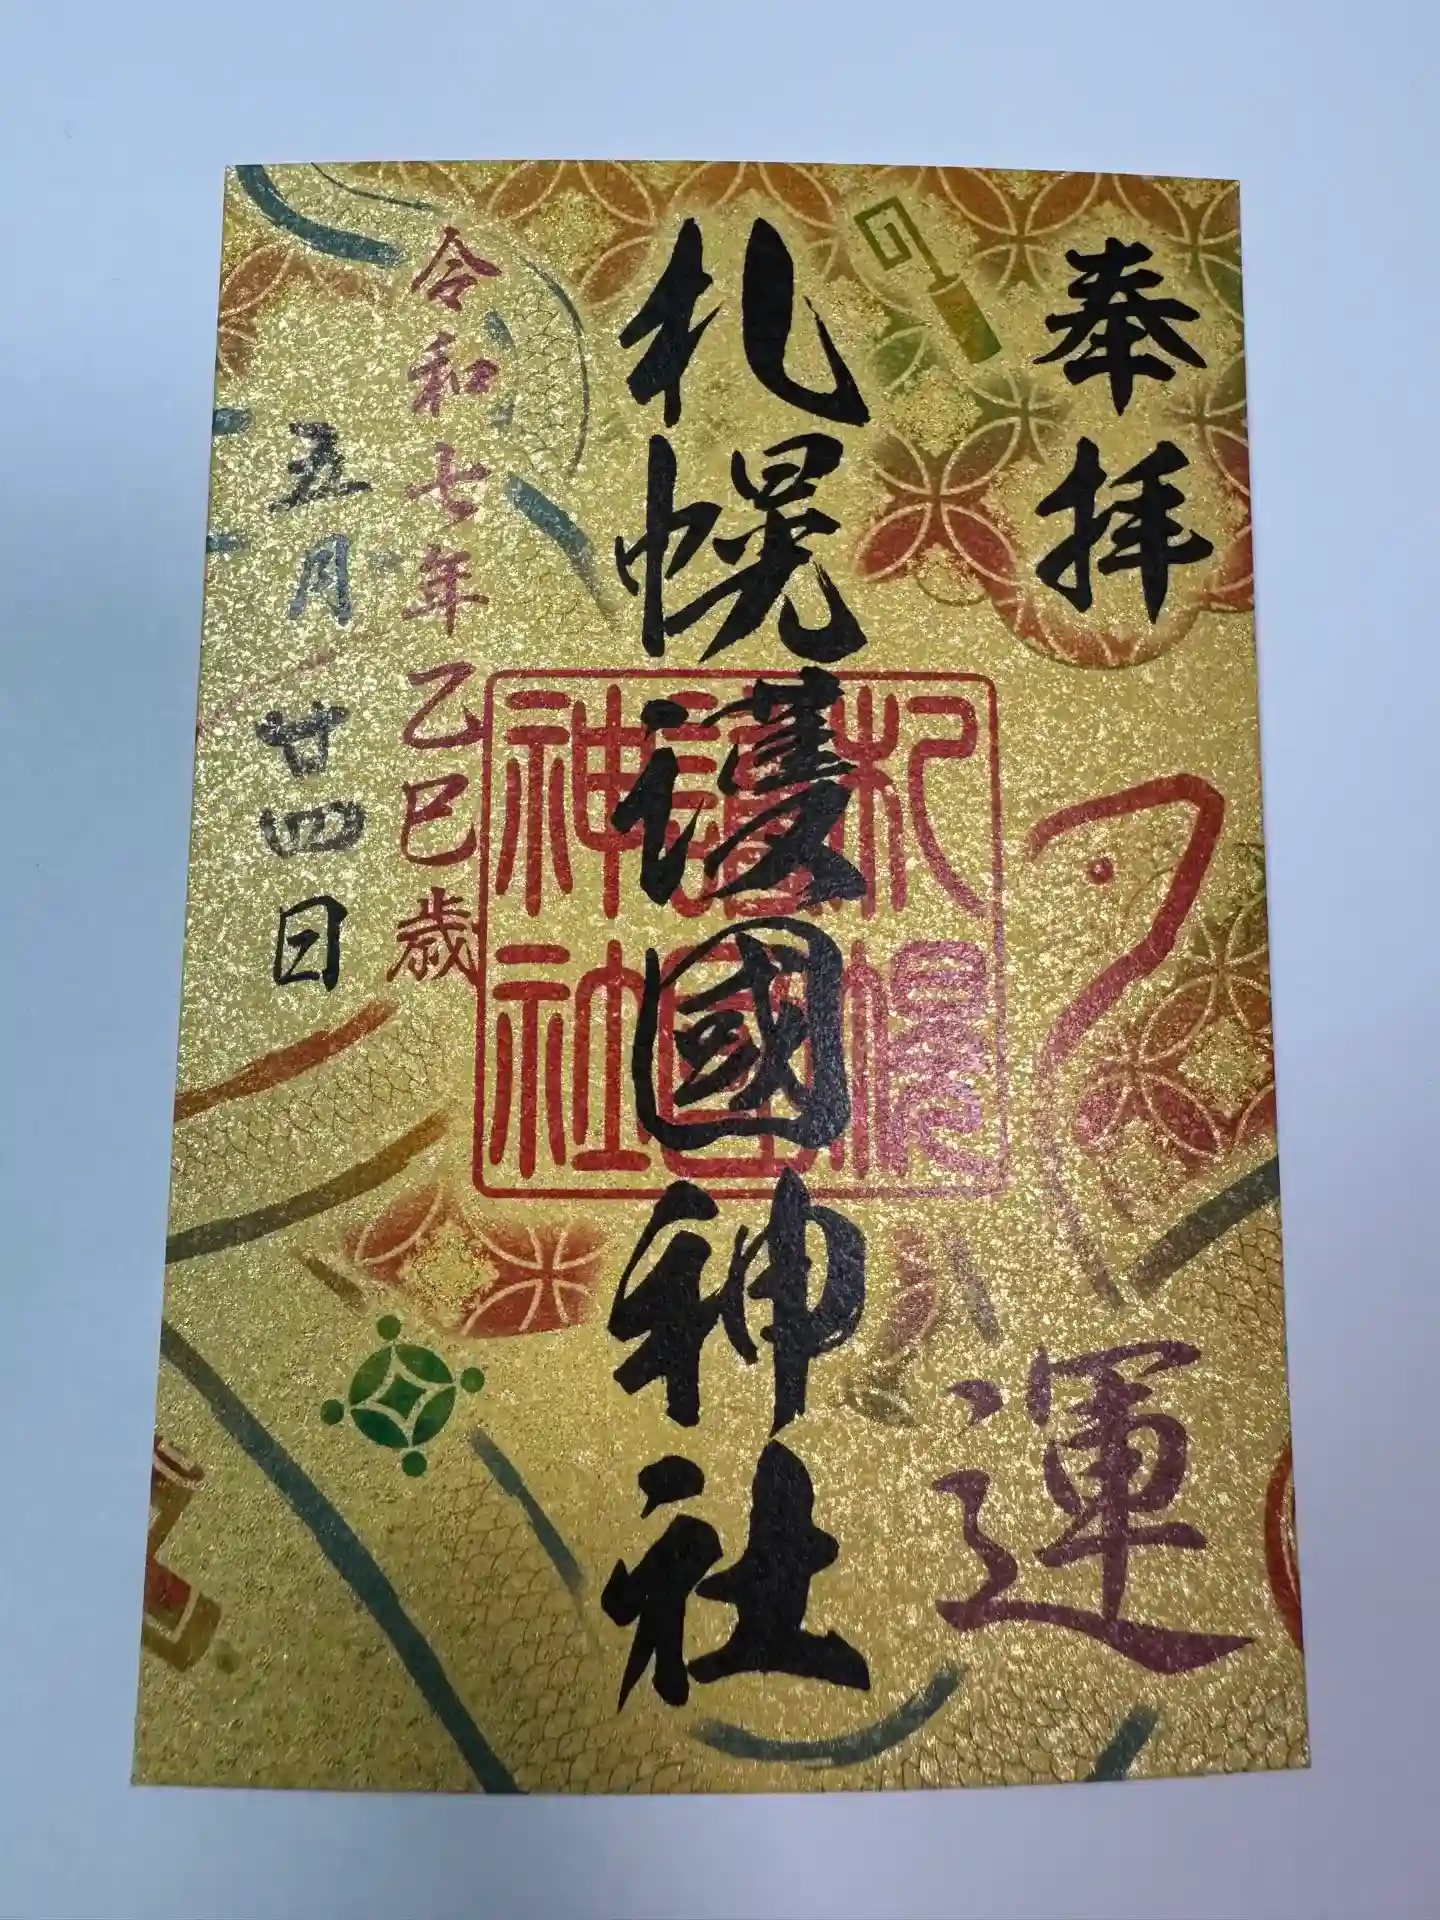 奉拝
運
札幌護國神社
札幌
護國
神社
令和七年乙巳歳
五月廿四日